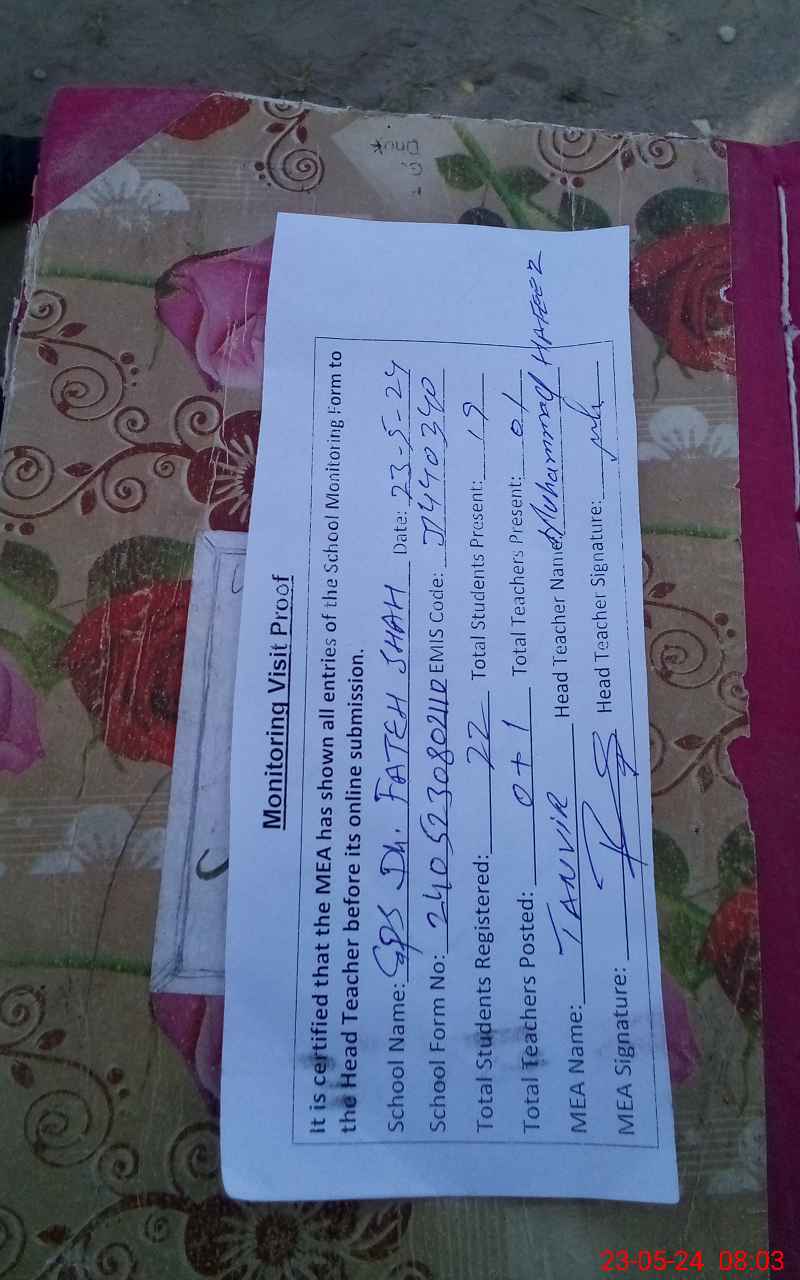 Monitoring Visit Proof
It is certified that the MEA has shown all entries of the School Monitoring Form to
the Head Teacher before its online submission.
School Name: GPS Dh. FATEH SHAH Date: 23-5-24
School Form No: EMIS Code:
Total Students Registered: 22 Total Students Present: 19
Total Teachers Posted: 0+1 Total Teachers Present: 01
MEA Name: TANVIR Head Teacher Name: Muhammad HAFEEZ
MEA Signature: Head Teacher Signature:
23-05-24 08:03